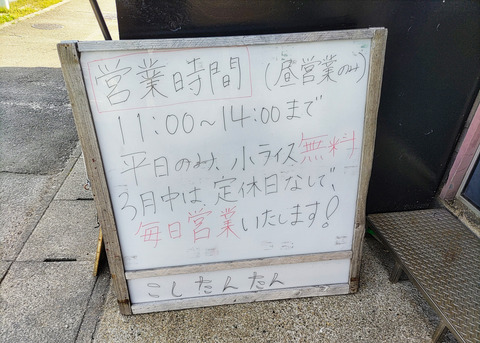 営業時間 (昼営業のみ)
11:00~14:00まで
平日のみ、小ライス無料
3月中は、定休日なしで、
毎日営業いたします!
こしたんたん